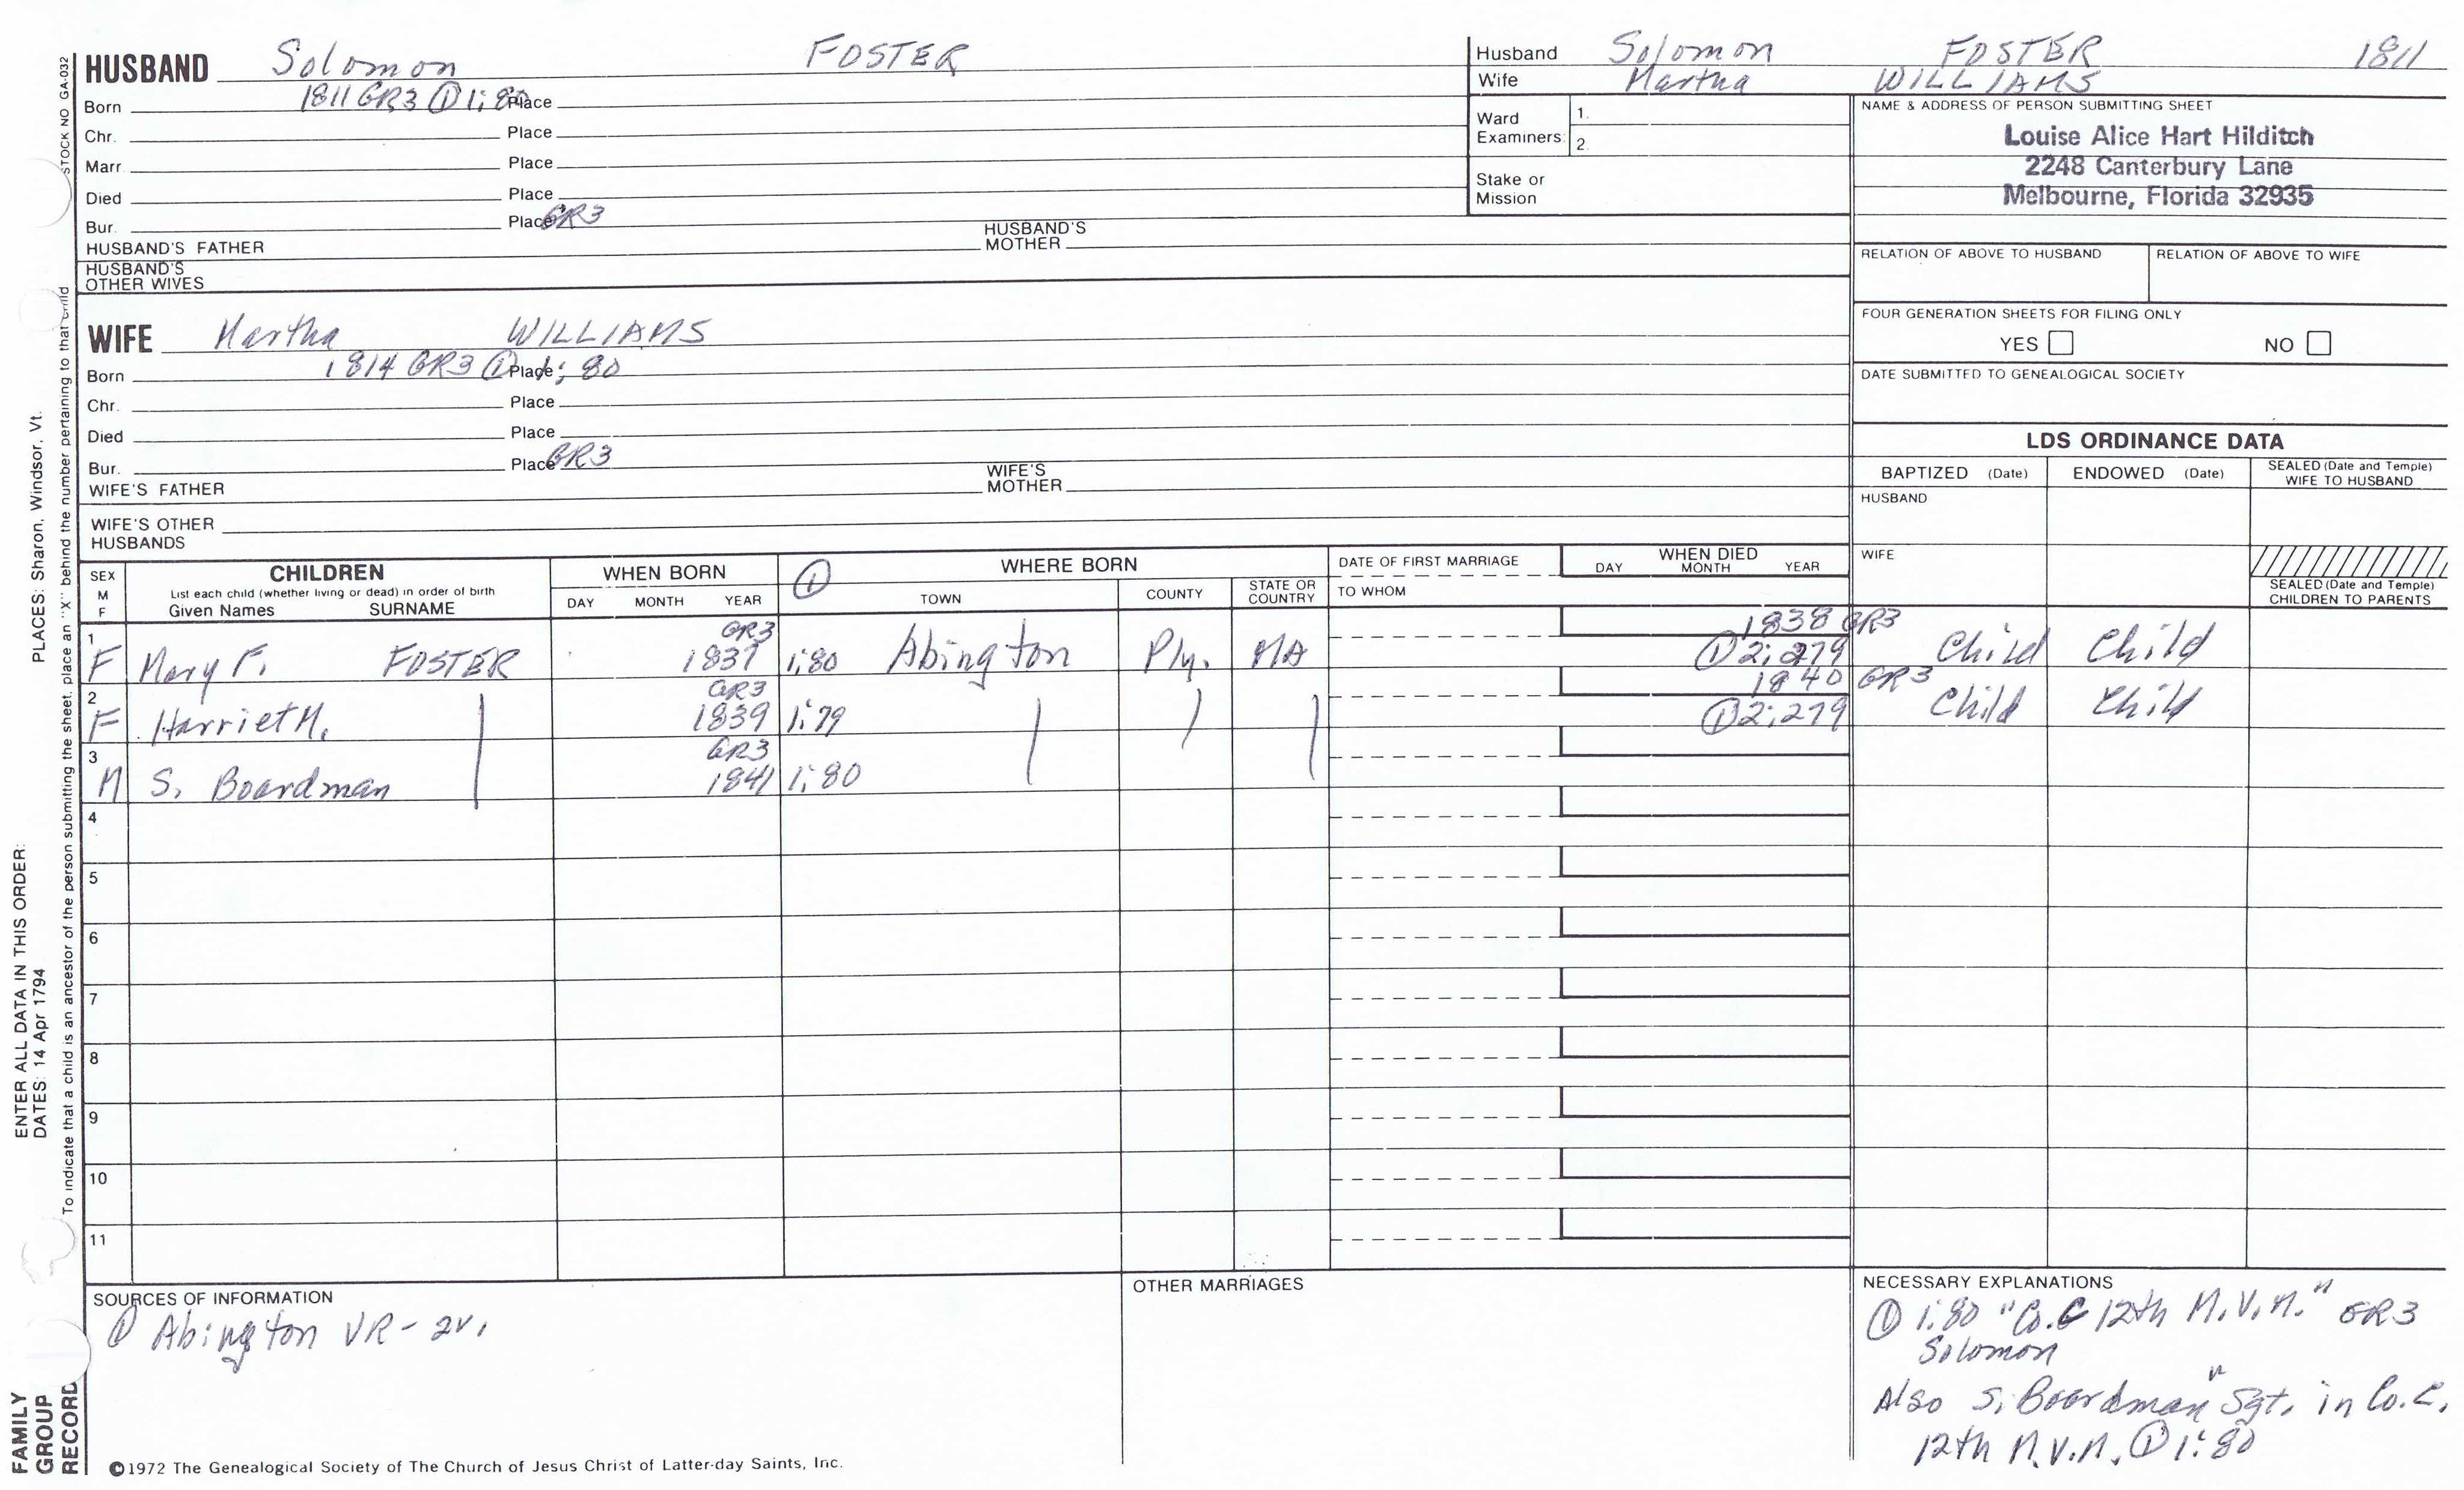 HUSBAND Solomon FOSTER
Born 1811 GR3 ① 1:80 Place
Chr. Place
Marr. Place
Died Place
Bur. Place GR3
HUSBAND'S FATHER HUSBAND'S MOTHER
HUSBAND'S OTHER WIVES
WIFE Martha WILLIAMS
Born 1814 GR3 ① 1:80 Place
Chr. Place
Died Place
Bur. Place GR3
WIFE'S FATHER WIFE'S MOTHER
WIFE'S OTHER HUSBANDS
Husband Solomon FOSTER 1811
Wife Martha WILLIAMS
Ward Examiners: 1.
2.
Stake or Mission
NAME & ADDRESS OF PERSON SUBMITTING SHEET
Louise Alice Hart Hilditch
2248 Canterbury Lane
Melbourne, Florida 32935
RELATION OF ABOVE TO HUSBAND RELATION OF ABOVE TO WIFE
FOUR GENERATION SHEETS FOR FILING ONLY
YES NO
DATE SUBMITTED TO GENEALOGICAL SOCIETY
LDS ORDINANCE DATA
BAPTIZED (Date) ENDOWED (Date) SEALED (Date and Temple) WIFE TO HUSBAND
HUSBAND
WIFE
SEALED (Date and Temple) CHILDREN TO PARENTS
SEX M F CHILDREN WHEN BORN ① WHERE BORN DATE OF FIRST MARRIAGE WHEN DIED
List each child (whether living or dead) in order of birth
Given Names SURNAME DAY MONTH YEAR TOWN COUNTY STATE OR COUNTRY TO WHOM DAY MONTH YEAR
1 GR3 1838 GR3
F Mary F. FOSTER 1837 1:80 Abington Ply. MA ① 2:279 Child Child
2 GR3 1840 GR3
F Harriet M. 1839 1:79 ① 2:279 Child Child
3 GR3
M S. Boardman 1841 1:80
4
5
6
7
8
9
10
11
SOURCES OF INFORMATION
① Abington VR - 2v.
OTHER MARRIAGES
NECESSARY EXPLANATIONS
① 1:80 "Co. C 12th M.V.M." GR3
Solomon
Also S. Boardman "Sgt. in Co. C,
12th M.V.M. ① 1:80
©1972 The Genealogical Society of The Church of Jesus Christ of Latter-day Saints, Inc.
STOCK NO GA-032
To indicate that a child is an ancestor of the person submitting the sheet, place an "X" behind the number pertaining to that child
ENTER ALL DATA IN THIS ORDER:
DATES: 14 Apr 1794 PLACES: Sharon, Windsor, Vt.
FAMILY
GROUP
RECORD